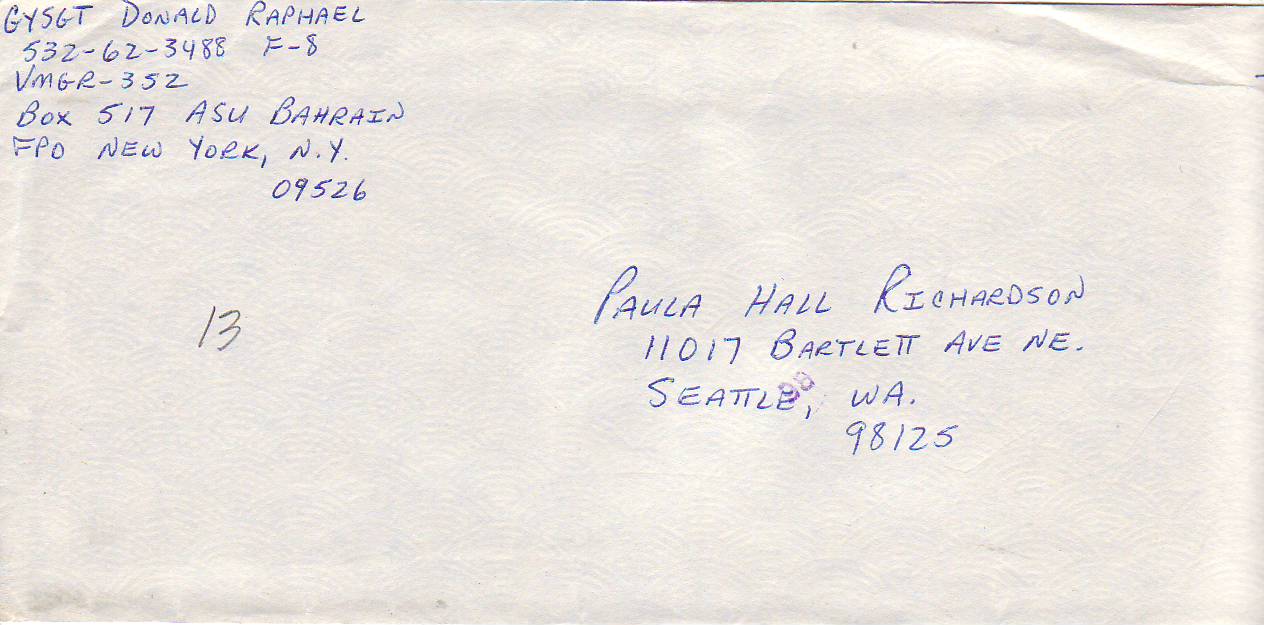 GYSGT DONALD RAPHAEL
532-62-3488 F-8
VMGR-352
BOX 517 ASU BAHRAIN
FPO NEW YORK, N.Y.
09526
13
PAULA HALL RICHARDSON
11017 BARTLETT AVE NE.
SEATTLE, WA.
98125